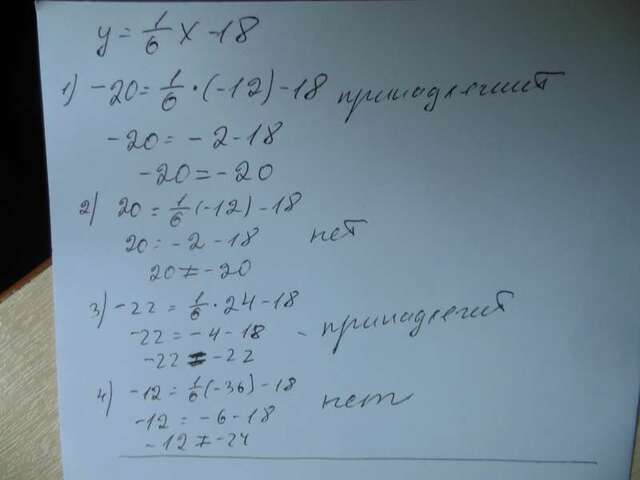 y = 1/6 x - 18
1) -20 = 1/6 · (-12) - 18 принадлежит
-20 = -2 - 18
-20 = -20
2) 20 = 1/6 (-12) - 18
20 = -2 - 18 нет
20 ≠ -20
3) -22 = 1/6 · 24 - 18
-22 = -4 - 18 - принадлежит
-22 = -22
4) -12 = 1/6 (-36) - 18
-12 = -6 - 18 нет
-12 ≠ -24